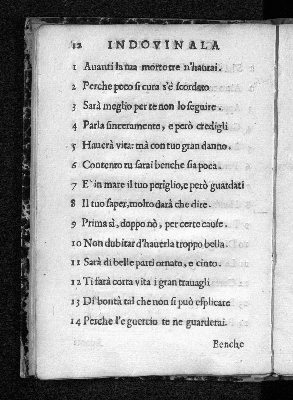 12 INDOVINALA
1 Avanti la tua morte tre n'haurai.
2 Perche poco si cura s'è scordato
3 Sarà meglio per te non lo seguire.
4 Parla sinceramente, e però credigli
5 Hauerà vita: mà con tuo gran danno.
6 Contento tu sarai benche sia poca.
7 E' in mare il tuo periglio, e però guardati
8 Il tuo saper, molto darà che dire.
9 Prima sì, doppo nò, per certe cause.
10 Non dubitar d'hauerla troppo bella.
11 Sarà di belle parti ornato, e cinto.
12 Ti farà corta vita i gran trauagli
13 Di bontà tal che non si può esplicare
14 Perche l'è guercio te ne guarderai.
Benche